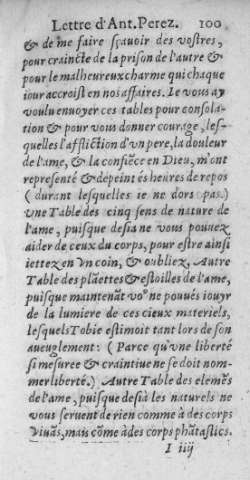 Lettre d'Ant. Perez. 100
& de me faire sçauoir des vostres,
pour craincte de la prison de l'autre &
pour le malheureux charme qui chaque
iour accroist en nos affaires. Ie vous ay
voulu enuoyer ces tables pour consola-
tion & pour vous donner courage, les-
quelles l'affliction d'vn pere, la douleur
de l'ame, & la confiēce en Dieu, m'ont
representé & depeint és heures de repos
( durant lesquelles ie ne dors pas.)
vne Table des cinq sens de nature de
l'ame, puisque desia ne vous pouuez
aider de ceux du corps, pour estre ainsi
iettez en vn coin, & oubliez. Autre
Table des plāettes & estoilles de l'ame,
puisque maintenāt voꝰ ne pouués iouyr
de la lumiere de ces cieux materiels,
lesquels Tobie estimoit tant lors de son
aueuglement: (Parce qu'vne liberté
si mesuree & craintiue ne se doit nom-
mer liberté.) Autre Table des elemēs
de l'ame, puisque desià les naturels ne
vous seruent de rien comme à des corps
viuās, mais cōme à des corps phātastics.
I iiij